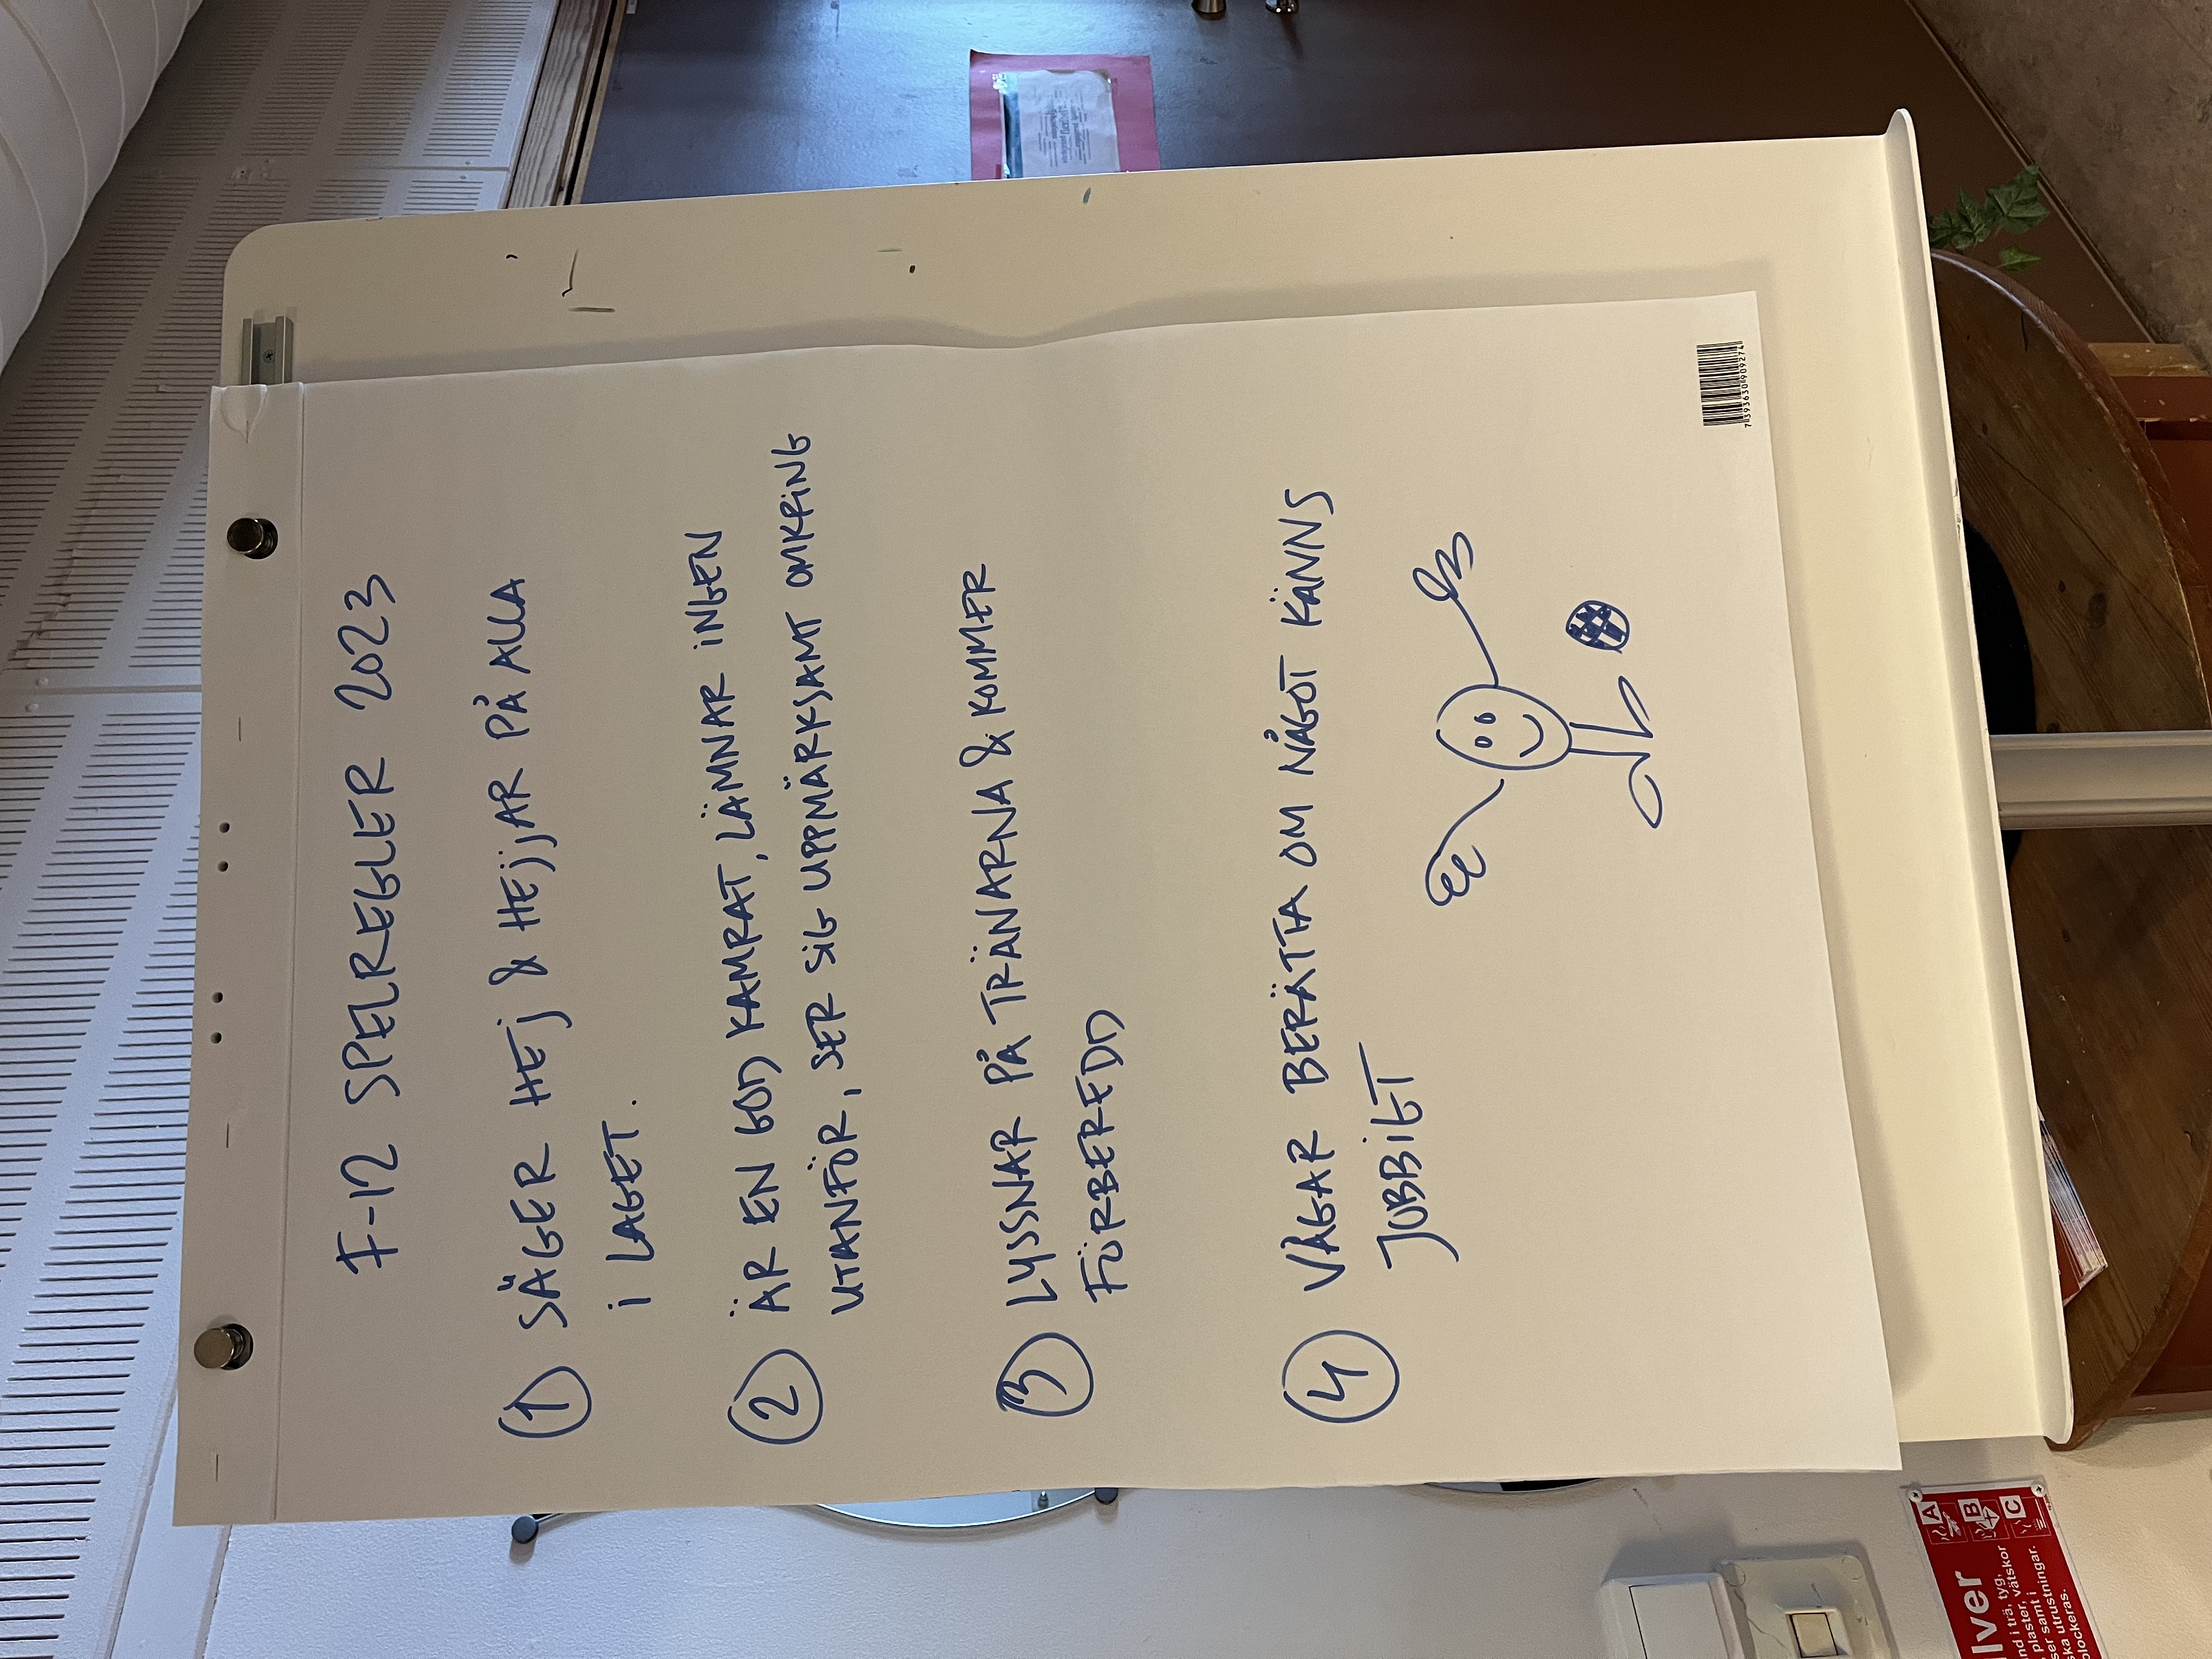 F-12 SPELREGLER 2023
1 SÄGER HEJ & HEJJAR PÅ ALLA
I LAGET.
2 ÄR EN GOD KAMRAT, LÄMNAR INGEN
UTANFÖR, SER SIG UPPMÄRKSAMT OMKRING
3 LYSSNAR PÅ TRÄNARNA & KOMMER
FÖRBEREDD
4 VÅGAR BERÄTTA OM NÅGOT KÄNNS
JOBBIGT
7393630909274
A
B
C
lver
nd i trä, tyg,
plaster, vätskor
ser samt i
ska utrustningar.
blockeras.